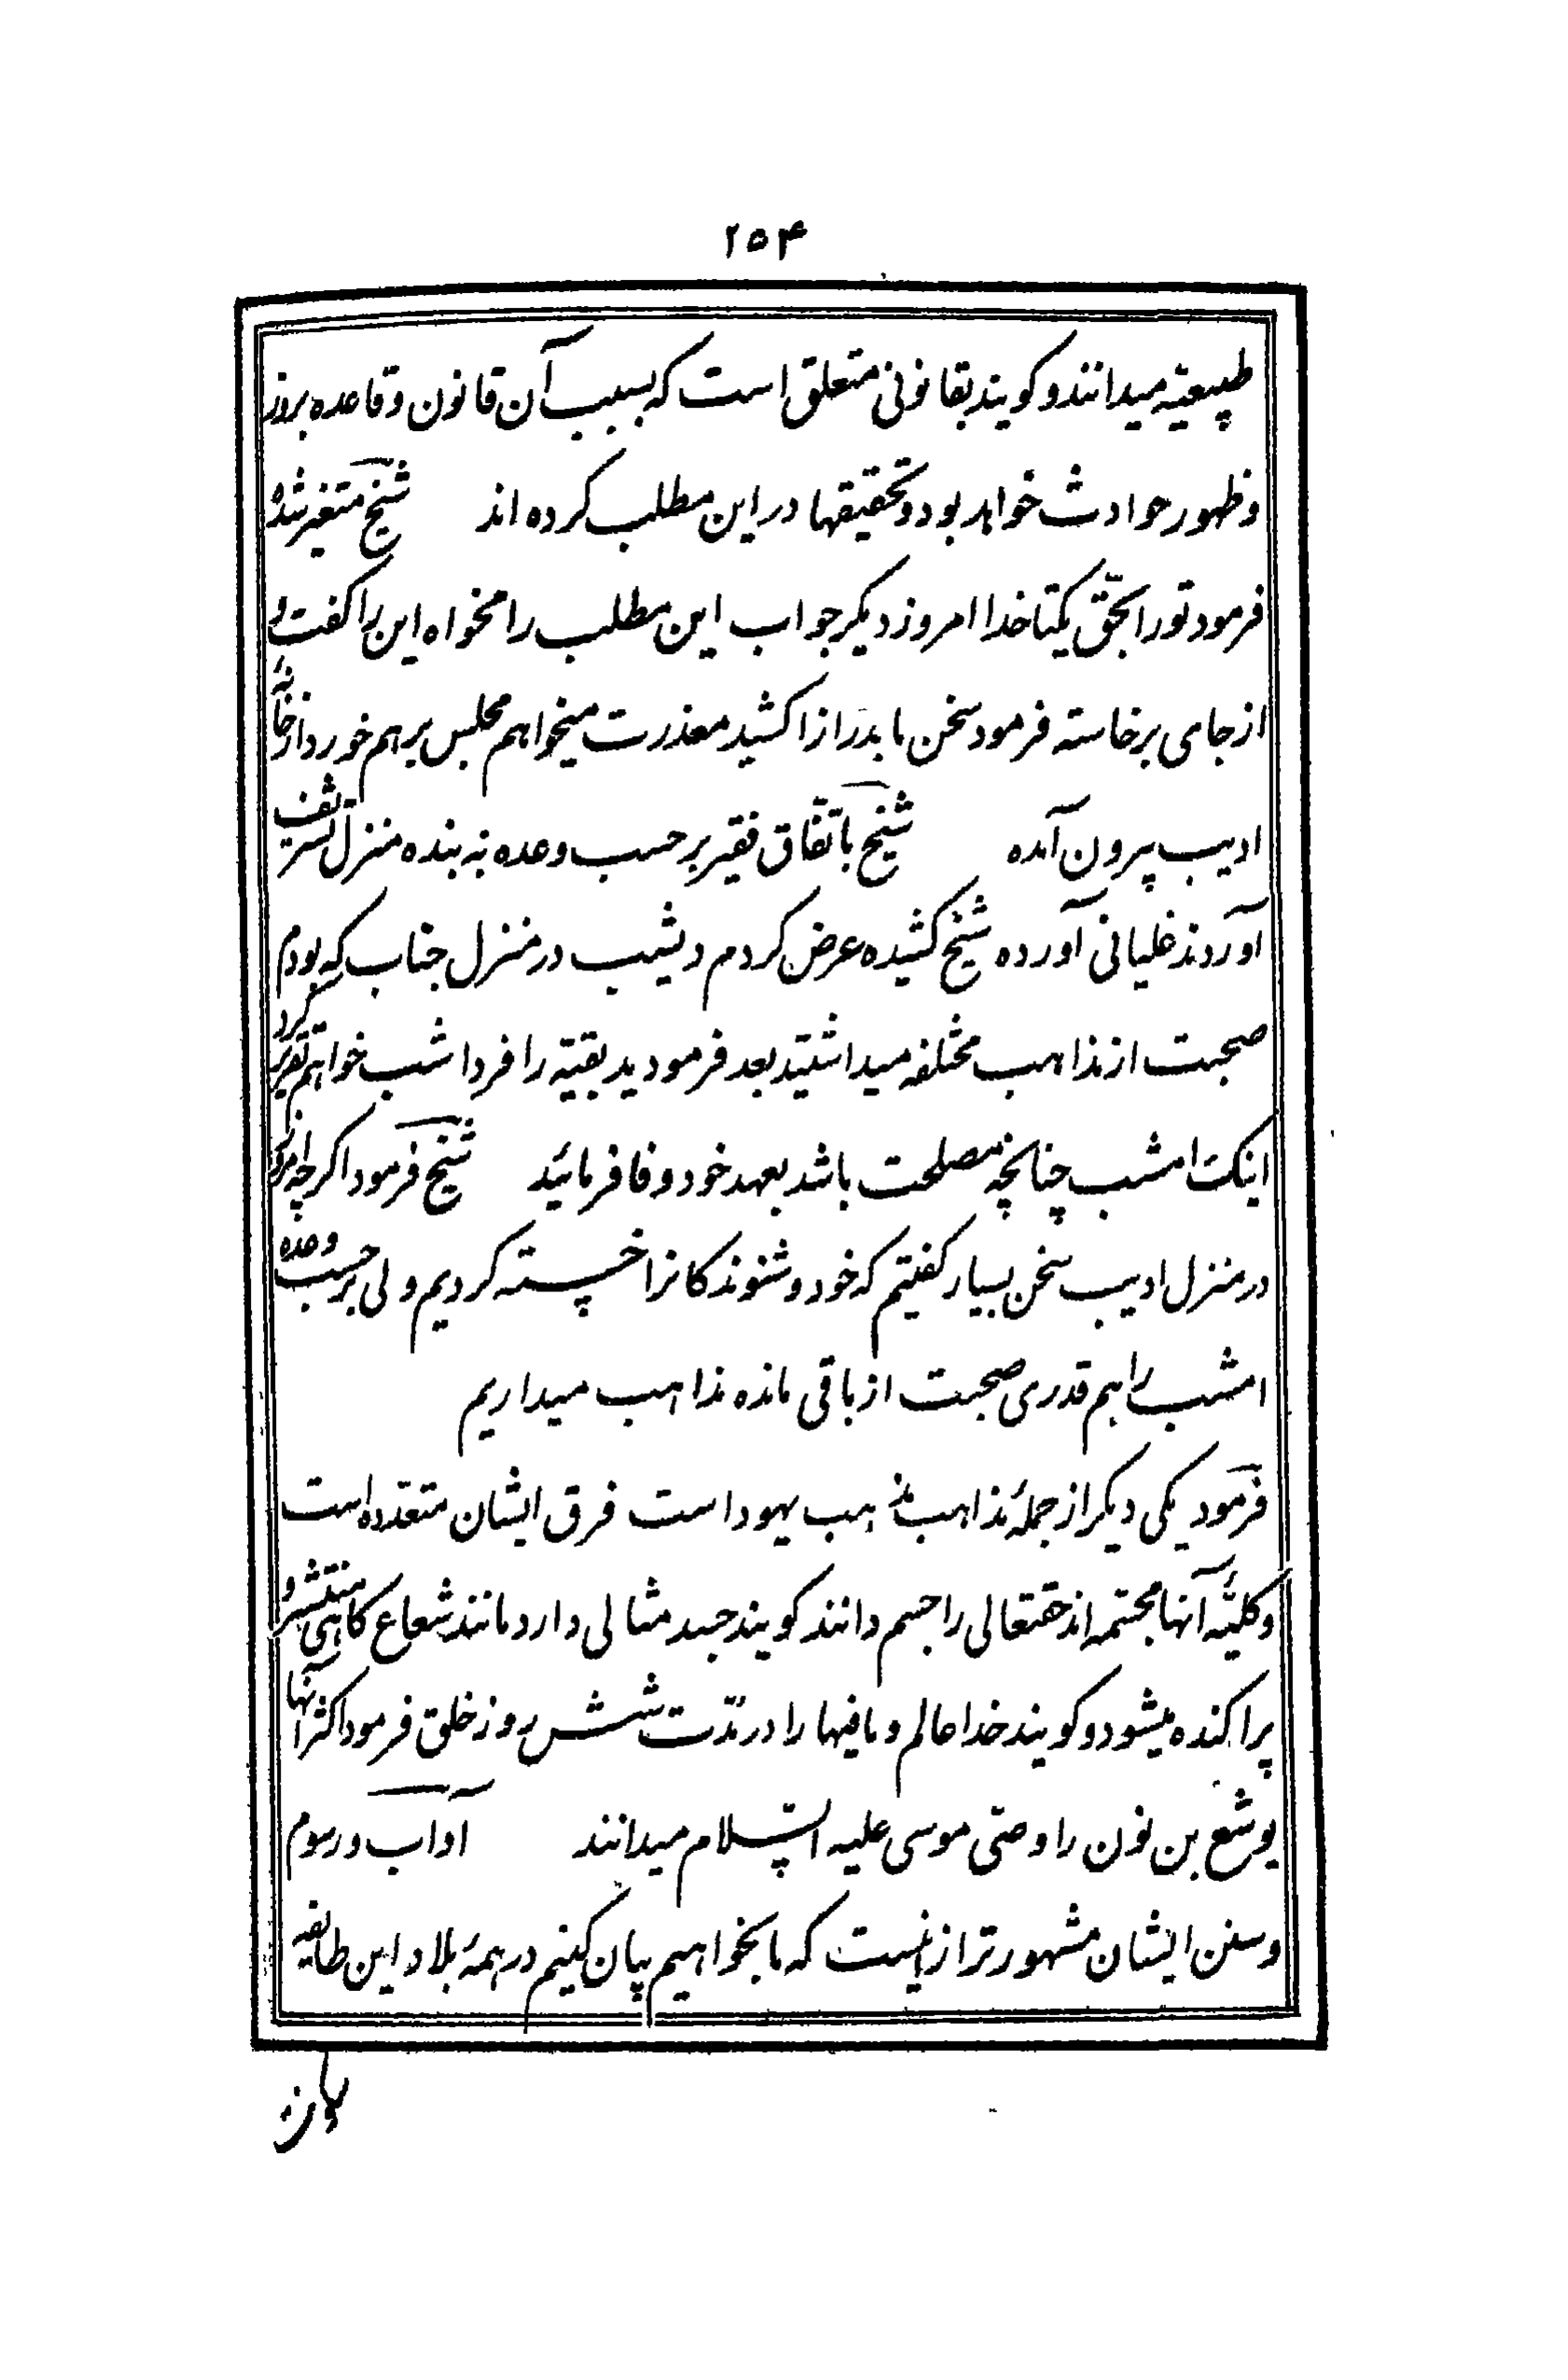 ۲۵۴
طبیعیّه میدانند و کویند بقانونی متعلق است که بسبب آن قانون و قاعده بروز
و ظهور حوادث خواهد بود و تحقیقها در این مطلب کرده اند شیخ متغیر شده
فرمود تو را بحقّ یکتا خدا امروز دیکر جواب این مطلب را مخواه این را کفت و
از جای برخاسته فرمود سخن ما بدرازا کشید معذرت میخواهم مجلس برهم خورد از خانهٔ
ادیب بیرون آمده شیخ باتّفاق فقیر بر حسب وعده به بنده منزل تشریف
آوردند غلیانی آورده شیخ کشیده عرض کردم دیشب در منزل جناب که بودم
صحبت از مذاهب مختلفه میداشتید بعد فرمودید بقیّه را فردا شب خواهم تقریر کرد
اینک امشب چنانچه مصلحت باشد بعهد خود وفا فرمائید شیخ فرمود اکرچه امروز
در منزل ادیب سخن بسیار کفتیم که خود و شنوندکانرا خسته کردیم ولی بر حسب وعده
امشب را هم قدری صحبت از باقی مانده مذاهب میداریم
فرمود یکی دیکر از جملهٔ مذاهب مذهب یهود است فرق ایشان متعدّده است
و کلیّهٔ آنها مجتمه اند حقتعالی را جسم دانند کویند جسد مثالی دارد مانند شعاع کاهی منتشر و
پراکنده میشود و کویند خدا عالم و مافیها را در مدّت شش روز خلق فرمود اکثر آنها
یوشع بن نون را وصّی موسی علیه السّلام میدانند آداب و رسوم
و سنن ایشان مشهورتر از اینست که ما بخواهیم بیان کنیم در همهٔ بلاد این طایفه